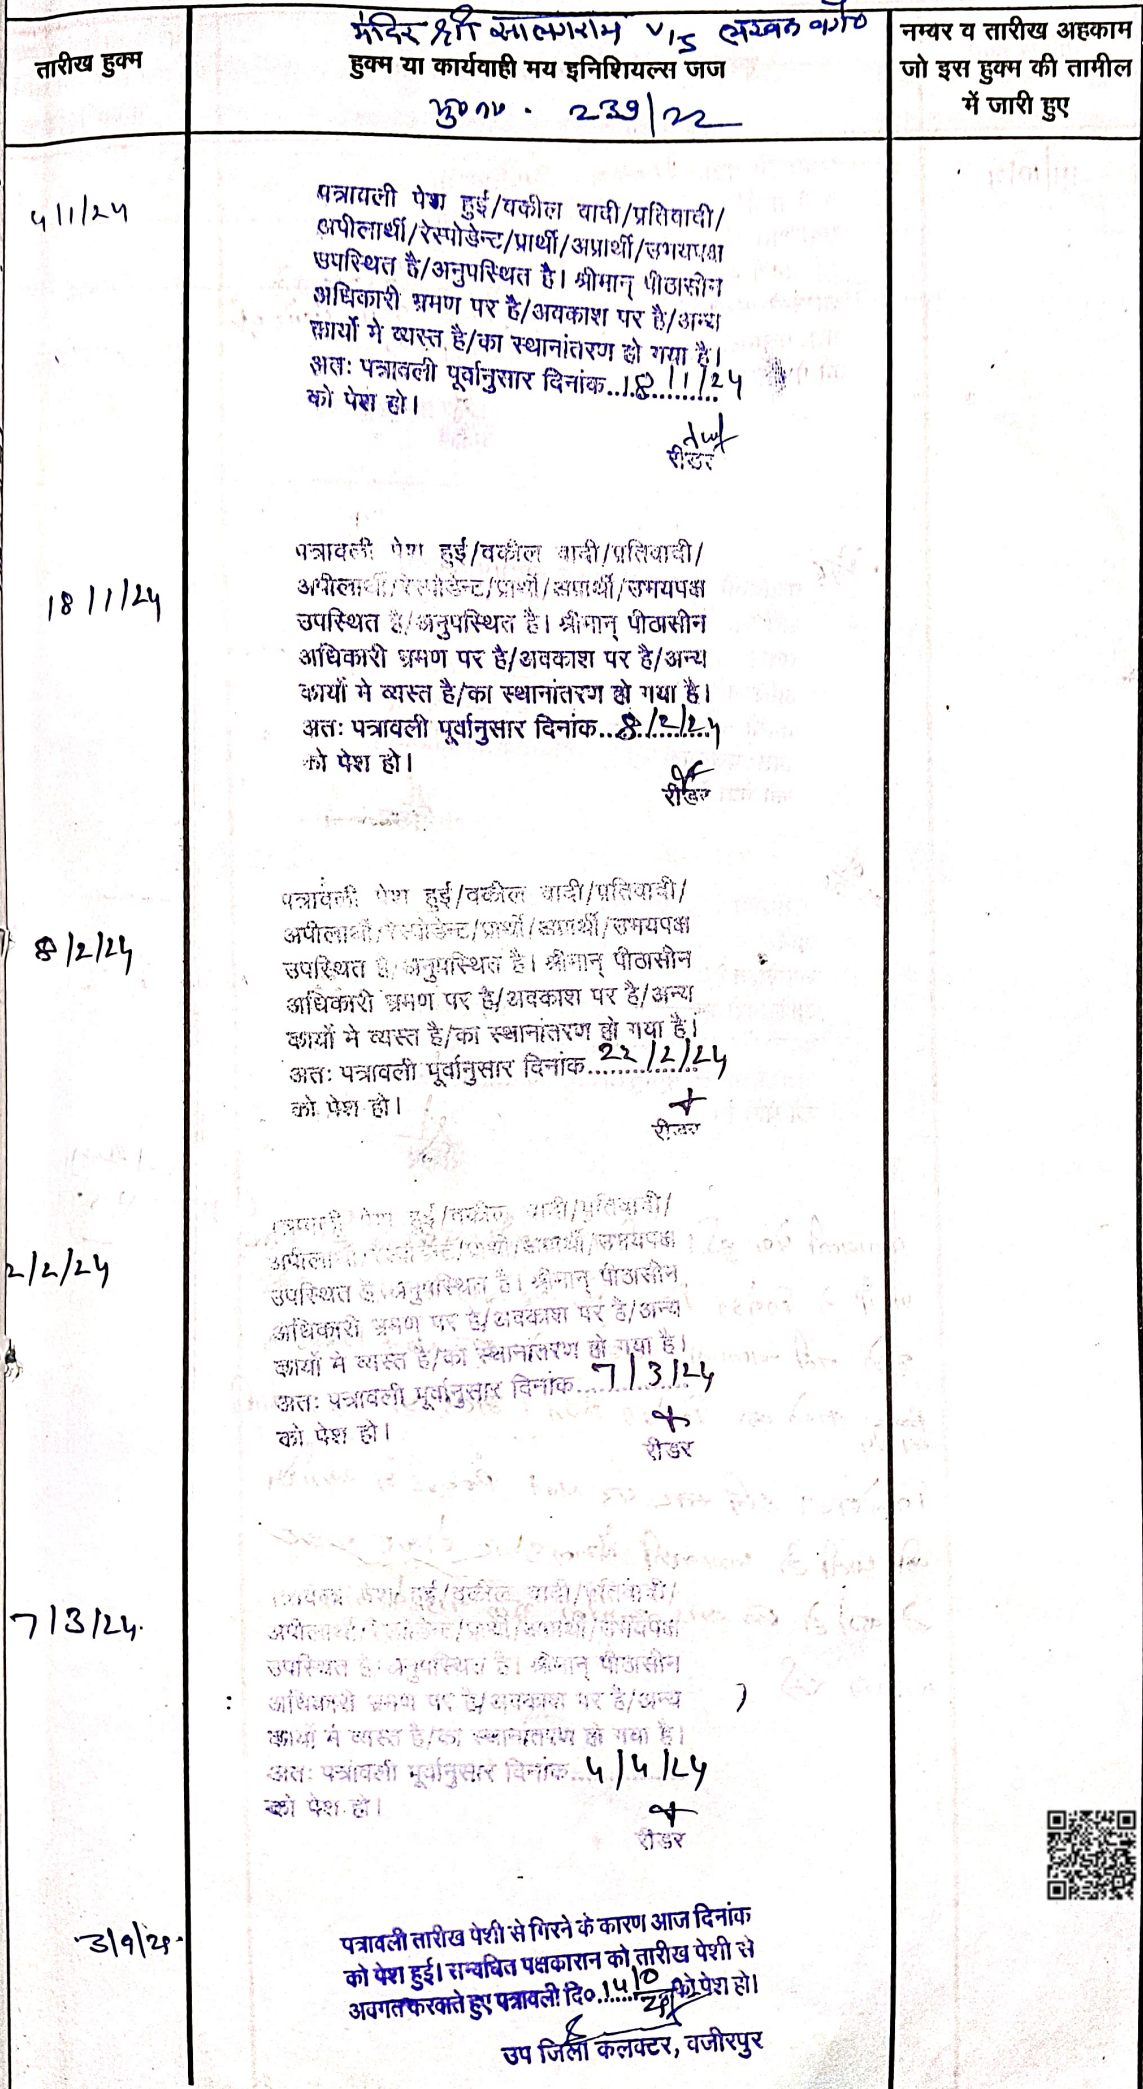 मंदिर श्री सालगराम v/s लखन वगै०
तारीख हुक्म
हुक्म या कार्यवाही मय इनिशियल्स जज
मु०न० . 239/22
नम्वर व तारीख अहकाम
जो इस हुक्म की तामील
में जारी हुए
4/1/24
पत्रावली पेश हुई/वकील वादी/प्रतिवादी/
अपीलार्थी/रेस्पोडेन्ट/प्रार्थी/अप्रार्थी/उभयपक्ष
उपस्थित है/अनुपस्थित है। श्रीमान् पीठासीन
अधिकारी भ्रमण पर है/अवकाश पर है/अन्य
कार्यो मे व्यस्त है/का स्थानांतरण हो गया है।
अतः पत्रावली पूर्वानुसार दिनांक..18/1/24
को पेश हो।
रीडर
18/1/24
पत्रावली पेश हुई/वकील वादी/प्रतिवादी/
अपीलार्थी/रेस्पोडेन्ट/प्रार्थी/अप्रार्थी/उभयपक्ष
उपस्थित है/अनुपस्थित है। श्रीमान् पीठासीन
अधिकारी भ्रमण पर है/अवकाश पर है/अन्य
कार्यो मे व्यस्त है/का स्थानांतरण हो गया है।
अतः पत्रावली पूर्वानुसार दिनांक...8/2/24
को पेश हो।
रीडर
8/2/24
पत्रावली पेश हुई/वकील वादी/प्रतिवादी/
अपीलार्थी/रेस्पोडेन्ट/प्रार्थी/अप्रार्थी/उभयपक्ष
उपस्थित है/अनुपस्थित है। श्रीमान् पीठासीन
अधिकारी भ्रमण पर है/अवकाश पर है/अन्य
कार्यो मे व्यस्त है/का स्थानांतरण हो गया है।
अतः पत्रावली पूर्वानुसार दिनांक..22/2/24
को पेश हो।
रीडर
2/2/24
पत्रावली पेश हुई/वकील वादी/प्रतिवादी/
अपीलार्थी/रेस्पोडेन्ट/प्रार्थी/अप्रार्थी/उभयपक्ष
उपस्थित है/अनुपस्थित है। श्रीमान् पीठासीन
अधिकारी भ्रमण पर है/अवकाश पर है/अन्य
कार्यो मे व्यस्त है/का स्थानांतरण हो गया है।
अतः पत्रावली पूर्वानुसार दिनांक..7/3/24
को पेश हो।
रीडर
7/3/24.
पत्रावली पेश हुई/वकील वादी/प्रतिवादी/
अपीलार्थी/रेस्पोडेन्ट/प्रार्थी/अप्रार्थी/उभयपक्ष
उपस्थित है/अनुपस्थित है। श्रीमान् पीठासीन
अधिकारी भ्रमण पर है/अवकाश पर है/अन्य
कार्यो मे व्यस्त है/का स्थानांतरण हो गया है।
अतः पत्रावली पूर्वानुसार दिनांक..4/4/24
को पेश हो।
रीडर
पत्रावली तारीख पेशी से गिरने के कारण आज दिनांक
को पेश हुई। सम्बधित पक्षकारान को तारीख पेशी से
अवगत करवाते हुए पत्रावली दि० को पेश हो।
उप जिला कलक्टर, वजीरपुर